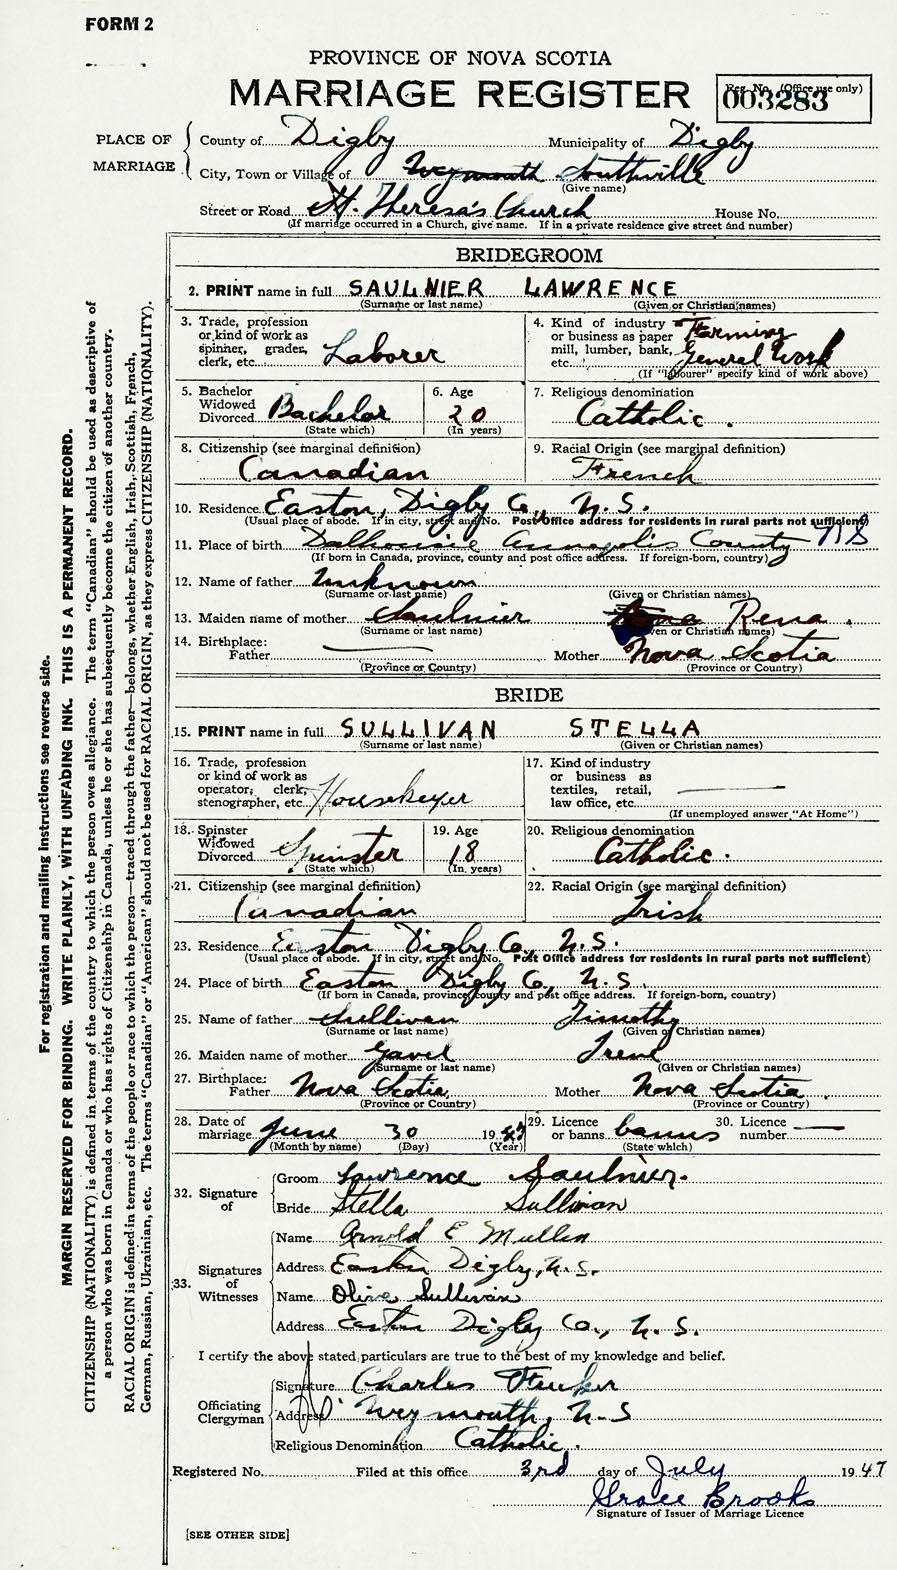 FORM 2
PROVINCE OF NOVA SCOTIA
MARRIAGE REGISTER
Reg. No. (Office use only)
003283
PLACE OF MARRIAGE
County of Digby Municipality of Digby
City, Town or Village of Weymouth Southville
(Give name)
Street or Road St. Theresa's Church House No.
(If marriage occurred in a Church, give name. If in a private residence give street and number)
BRIDEGROOM
2. PRINT name in full SAULNIER LAWRENCE
(Surname or last name) (Given or Christian names)
3. Trade, profession or kind of work as spinner, grader, clerk, etc. Laborer
4. Kind of industry or business as paper mill, lumber, bank, etc. Farming General Work
(If "labourer" specify kind of work above)
5. Bachelor Widowed Divorced Bachelor
(State which)
6. Age 20
(In years)
7. Religious denomination Catholic.
8. Citizenship (see marginal definition) Canadian
9. Racial Origin (see marginal definition) French
10. Residence Easton, Digby Co., N.S.
(Usual place of abode. If in city, street and No. Post Office address for residents in rural parts not sufficient)
11. Place of birth Dalhousie Annapolis County NS
(If born in Canada, province, county and post office address. If foreign-born, country)
12. Name of father Unknown
(Surname or last name) (Given or Christian names)
13. Maiden name of mother Saulnier Rena.
(Surname or last name) (Given or Christian names)
14. Birthplace: Father — Mother Nova Scotia
(Province or Country) (Province or Country)
BRIDE
15. PRINT name in full SULLIVAN STELLA
(Surname or last name) (Given or Christian names)
16. Trade, profession or kind of work as operator, clerk, stenographer, etc. Housekeeper
17. Kind of industry or business as textiles, retail, law office, etc. —
(If unemployed answer "At Home")
18. Spinster Widowed Divorced Spinster
(State which)
19. Age 18
(In years)
20. Religious denomination Catholic.
21. Citizenship (see marginal definition) Canadian
22. Racial Origin (see marginal definition) Irish
23. Residence Easton Digby Co., N.S.
(Usual place of abode. If in city, street and No. Post Office address for residents in rural parts not sufficient)
24. Place of birth Easton Digby Co., N.S.
(If born in Canada, province, county and post office address. If foreign-born, country)
25. Name of father Sullivan Timothy
(Surname or last name) (Given or Christian names)
26. Maiden name of mother Gavel Irene
(Surname or last name) (Given or Christian names)
27. Birthplace: Father Nova Scotia Mother Nova Scotia.
(Province or Country) (Province or Country)
28. Date of marriage June 30 1947
(Month by name) (Day) (Year)
29. Licence or banns banns
(State which)
30. Licence number —
32. Signature of
Groom Lawrence Saulnier.
Bride Stella Sullivan
33. Signatures of Witnesses
Name Arnold E Mullen
Address Easton Digby, N.S.
Name Olive Sullivan
Address Easton Digby Co., N.S.
I certify the above stated particulars are true to the best of my knowledge and belief.
Officiating Clergyman
Signature Charles
Address Weymouth, N-S
Religious Denomination Catholic.
Registered No. Filed at this office 3rd day of July 1947
Grace Brooks
Signature of Issuer of Marriage Licence
[SEE OTHER SIDE]
For registration and mailing instructions see reverse side.
MARGIN RESERVED FOR BINDING. WRITE PLAINLY, WITH UNFADING INK. THIS IS A PERMANENT RECORD.
CITIZENSHIP (NATIONALITY) is defined in terms of the country to which the person owes allegiance. The term "Canadian" should be used as descriptive of
a person who was born in Canada or who has rights of Citizenship in Canada, unless he or she has subsequently become the citizen of another country.
RACIAL ORIGIN is defined in terms of the people or race to which the person—traced through the father—belongs, whether English, Irish, Scottish, French,
German, Russian, Ukrainian, etc. The terms "Canadian" or "American" should not be used for RACIAL ORIGIN, as they express CITIZENSHIP (NATIONALITY).